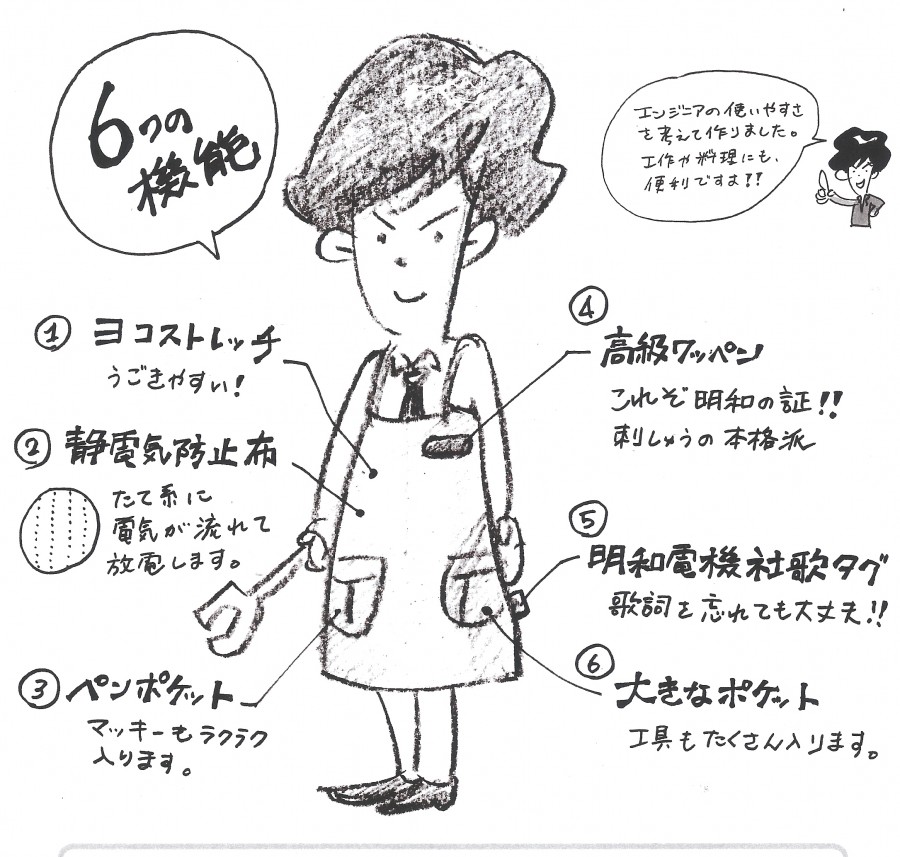 6つの
機能
エンジニアの使いやすさ
を考えて作りました。
工作や料理にも、
便利ですよ!!
① ヨコストレッチ
うごきやすい!
② 静電気防止布
たて糸に
電気が流れて
放電します。
③ ペンポケット
マッキーもラクラク
入ります。
④
高級ワッペン
これぞ明和の証!!
刺しゅうの本格派
⑤
明和電機社歌タグ
歌詞を忘れても大丈夫!!
⑥
大きなポケット
工具もたくさん入ります。